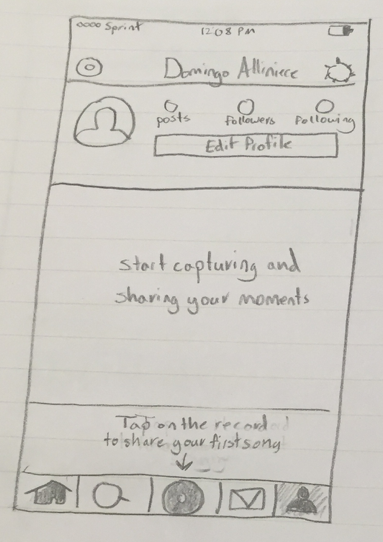 oooo Sprint 12:08 PM
Domingo Alliniece
0 0 0
posts followers following
Edit Profile
start capturing and
sharing your moments
Tap on the record
to share your first song